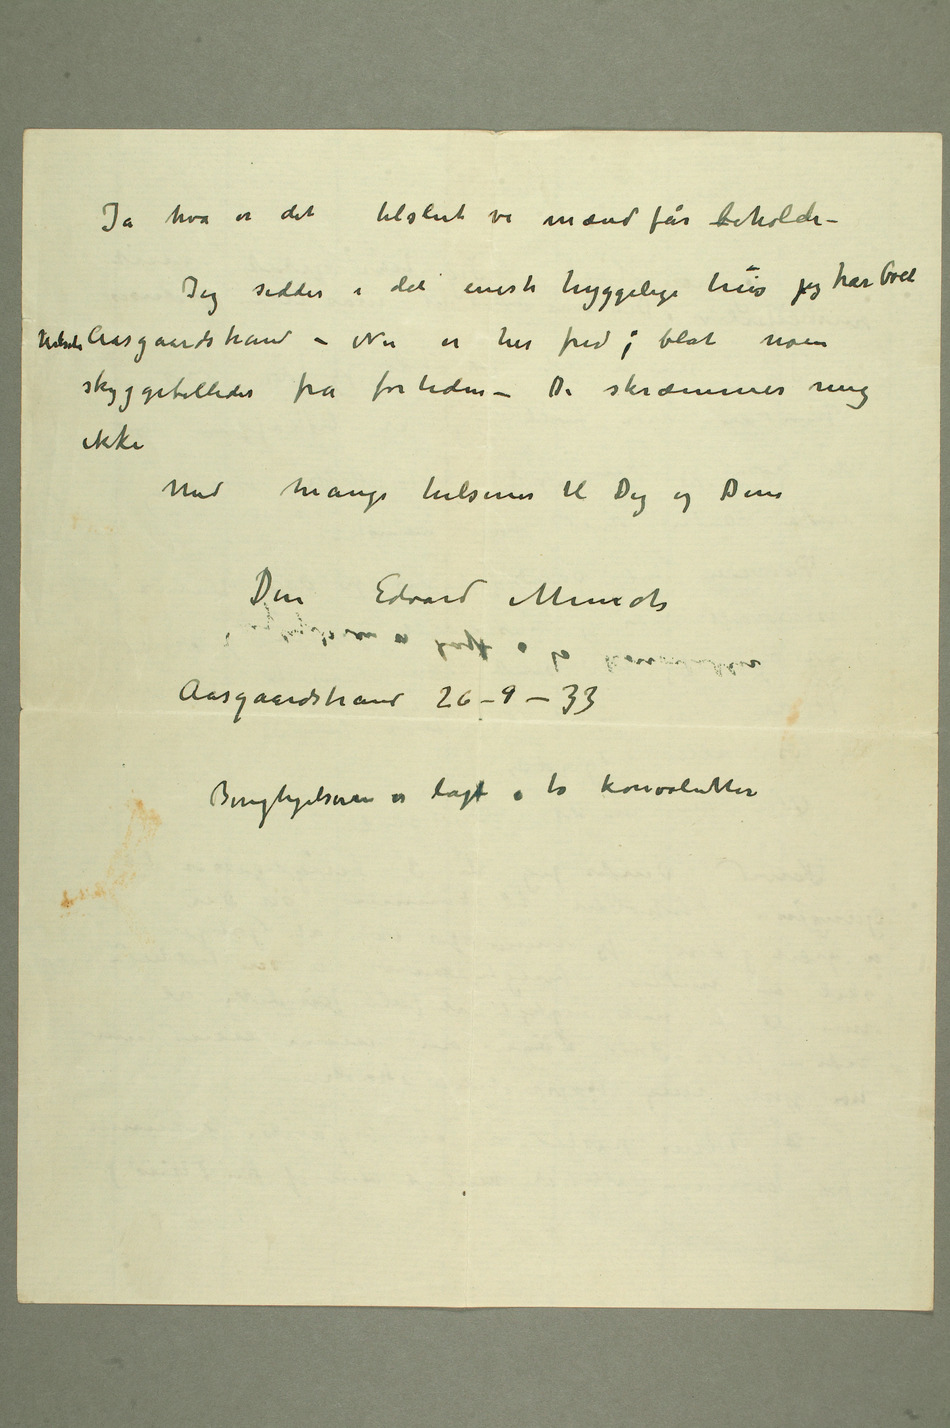 Ja hva er det tilslut vi mænd får beholde –
Jeg sidder i det eneste hyggelige hus jeg har boet
Aasgaardstrand – Nu er her fred; blot noen
skyggebilleder fra fortiden – De skræmmer mig
ikke
Med mange hilsener til Dig og Dine
Din Edvard Munch
Aasgaardstrand 26–9–33
er lagt i to konvolutter